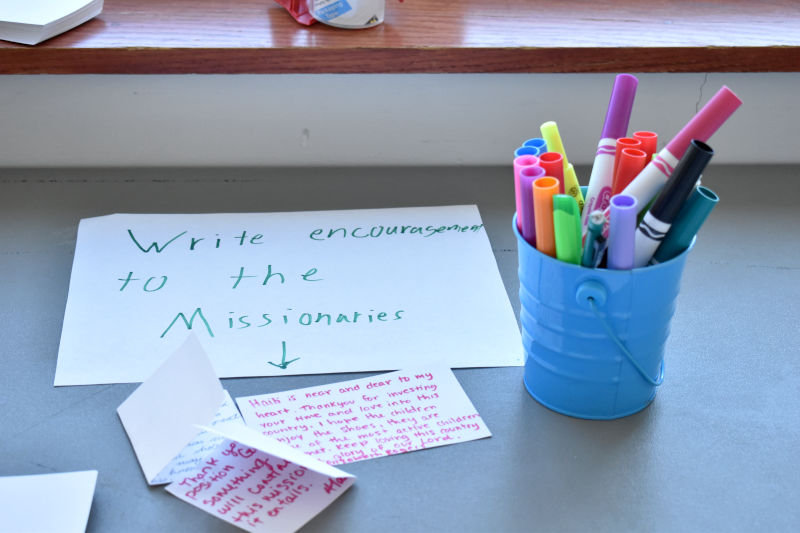 Write encouragement
to the
Missionaries
Haiti is near and dear to my
heart. Thankyou for investing
your time and love into this
country. I hope the children
enjoy the shoes, they are
of the most active children
met. Keep loving this country
glory of our Lord.
Thank yo
position G
something
will contin
this missio
it entails.